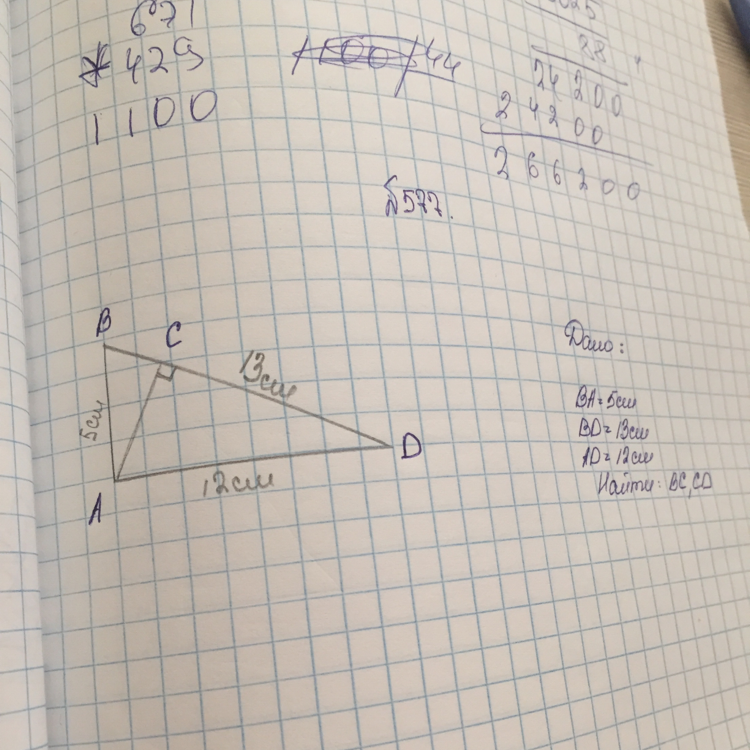 671
* 429
1100
44
28
24200
24200
266200
№577.
B
C
13см
5см
D
12см
A
Дано:
BA=5см
BD=13см
AD=12см
Найти: BC,CD